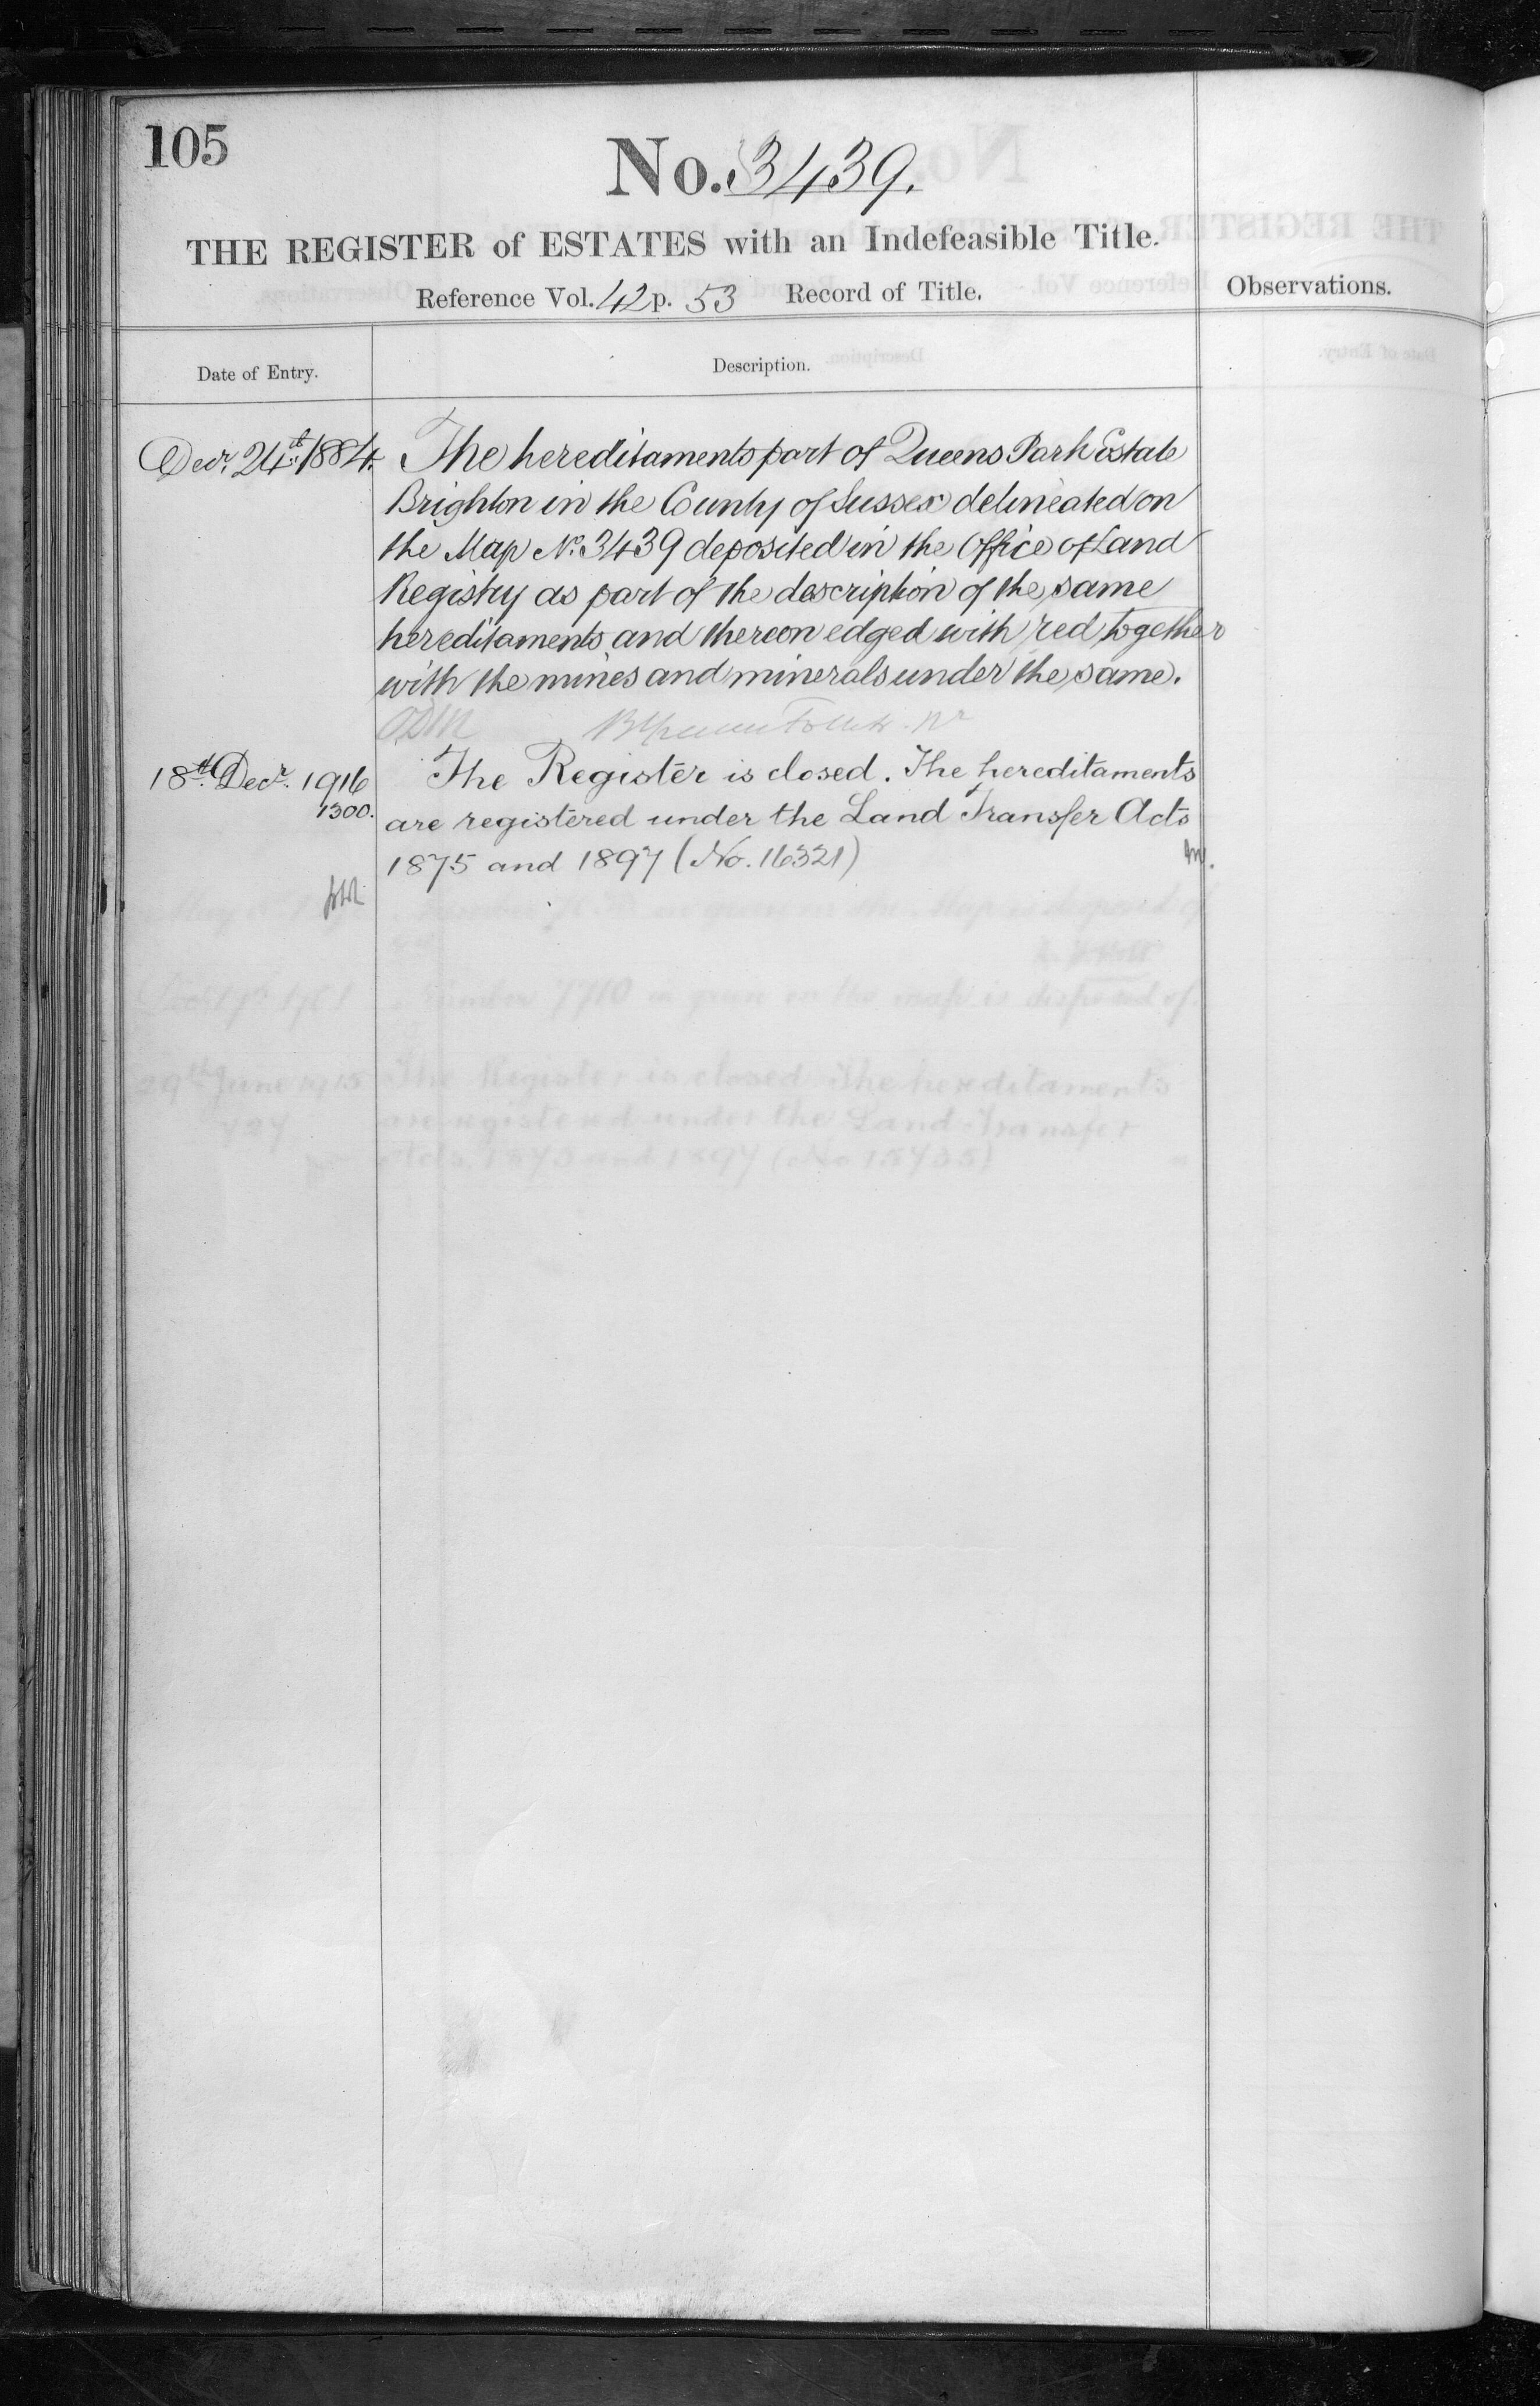 105
No. 3439.
THE REGISTER of ESTATES with an Indefeasible Title.
Reference Vol. 42 p. 53 Record of Title.
Observations.
Date of Entry.
Description.
Decr. 24th 1884. The hereditaments part of Queens Park Estate
Brighton in the County of Sussex delineated on
the Map No. 3439 deposited in the Office of Land
Registry as part of the description of the same
hereditaments and thereon edged with red together
with the mines and minerals under the same.
18th Decr. 1916 The Register is closed. The hereditaments
1300. are registered under the Land Transfer Acts
1875 and 1897 (No. 16321)